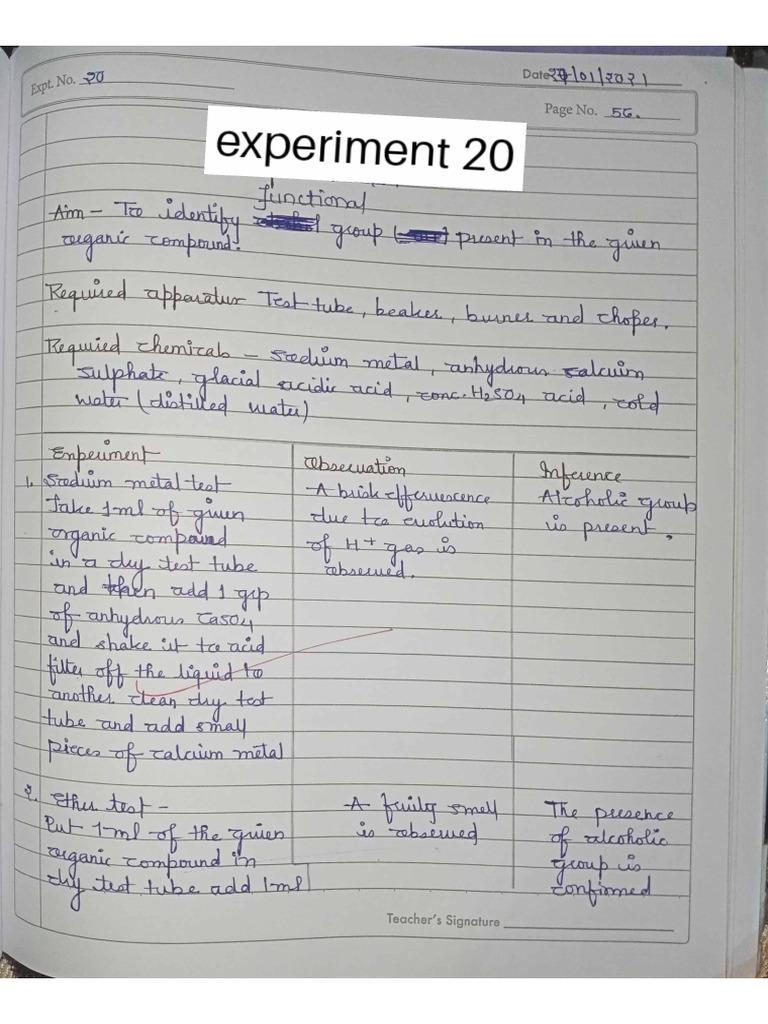 Expt. No. २०
Date २७/०१/२०२१
Page No. 56.
experiment 20
functional
Aim – To identify group present in the given
organic compound.
Required apparatus Test tube, beaker, burner and chopes.
Required chemicals – sodium metal, anhydrous calcium
sulphate, glacial acidic acid, conc. H2SO4 acid, cold
water (distilled water)
Experiment
Observation
Inference
1. Sodium metal test
Take 1ml of given
organic compound
in a dry test tube
and then add 1 gp
of anhydrous CaSO4
and shake it to acid
filter off the liquid to
another clean dry test
tube and add small
pieces of calcium metal
A brisk effervescence
due to evolution
of H+ gas is
observed.
Alcoholic group
is present.
२. Ether test –
Put 1ml of the given
organic compound in
dry test tube add 1ml
A fruity smell
is observed
The presence
of alcoholic
group is
confirmed
Teacher's Signature